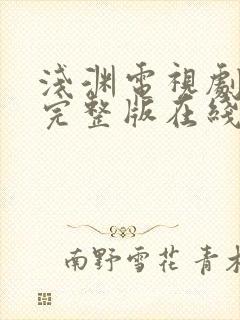 淺渊電視劇
完整版在綫
南野雪花 青木